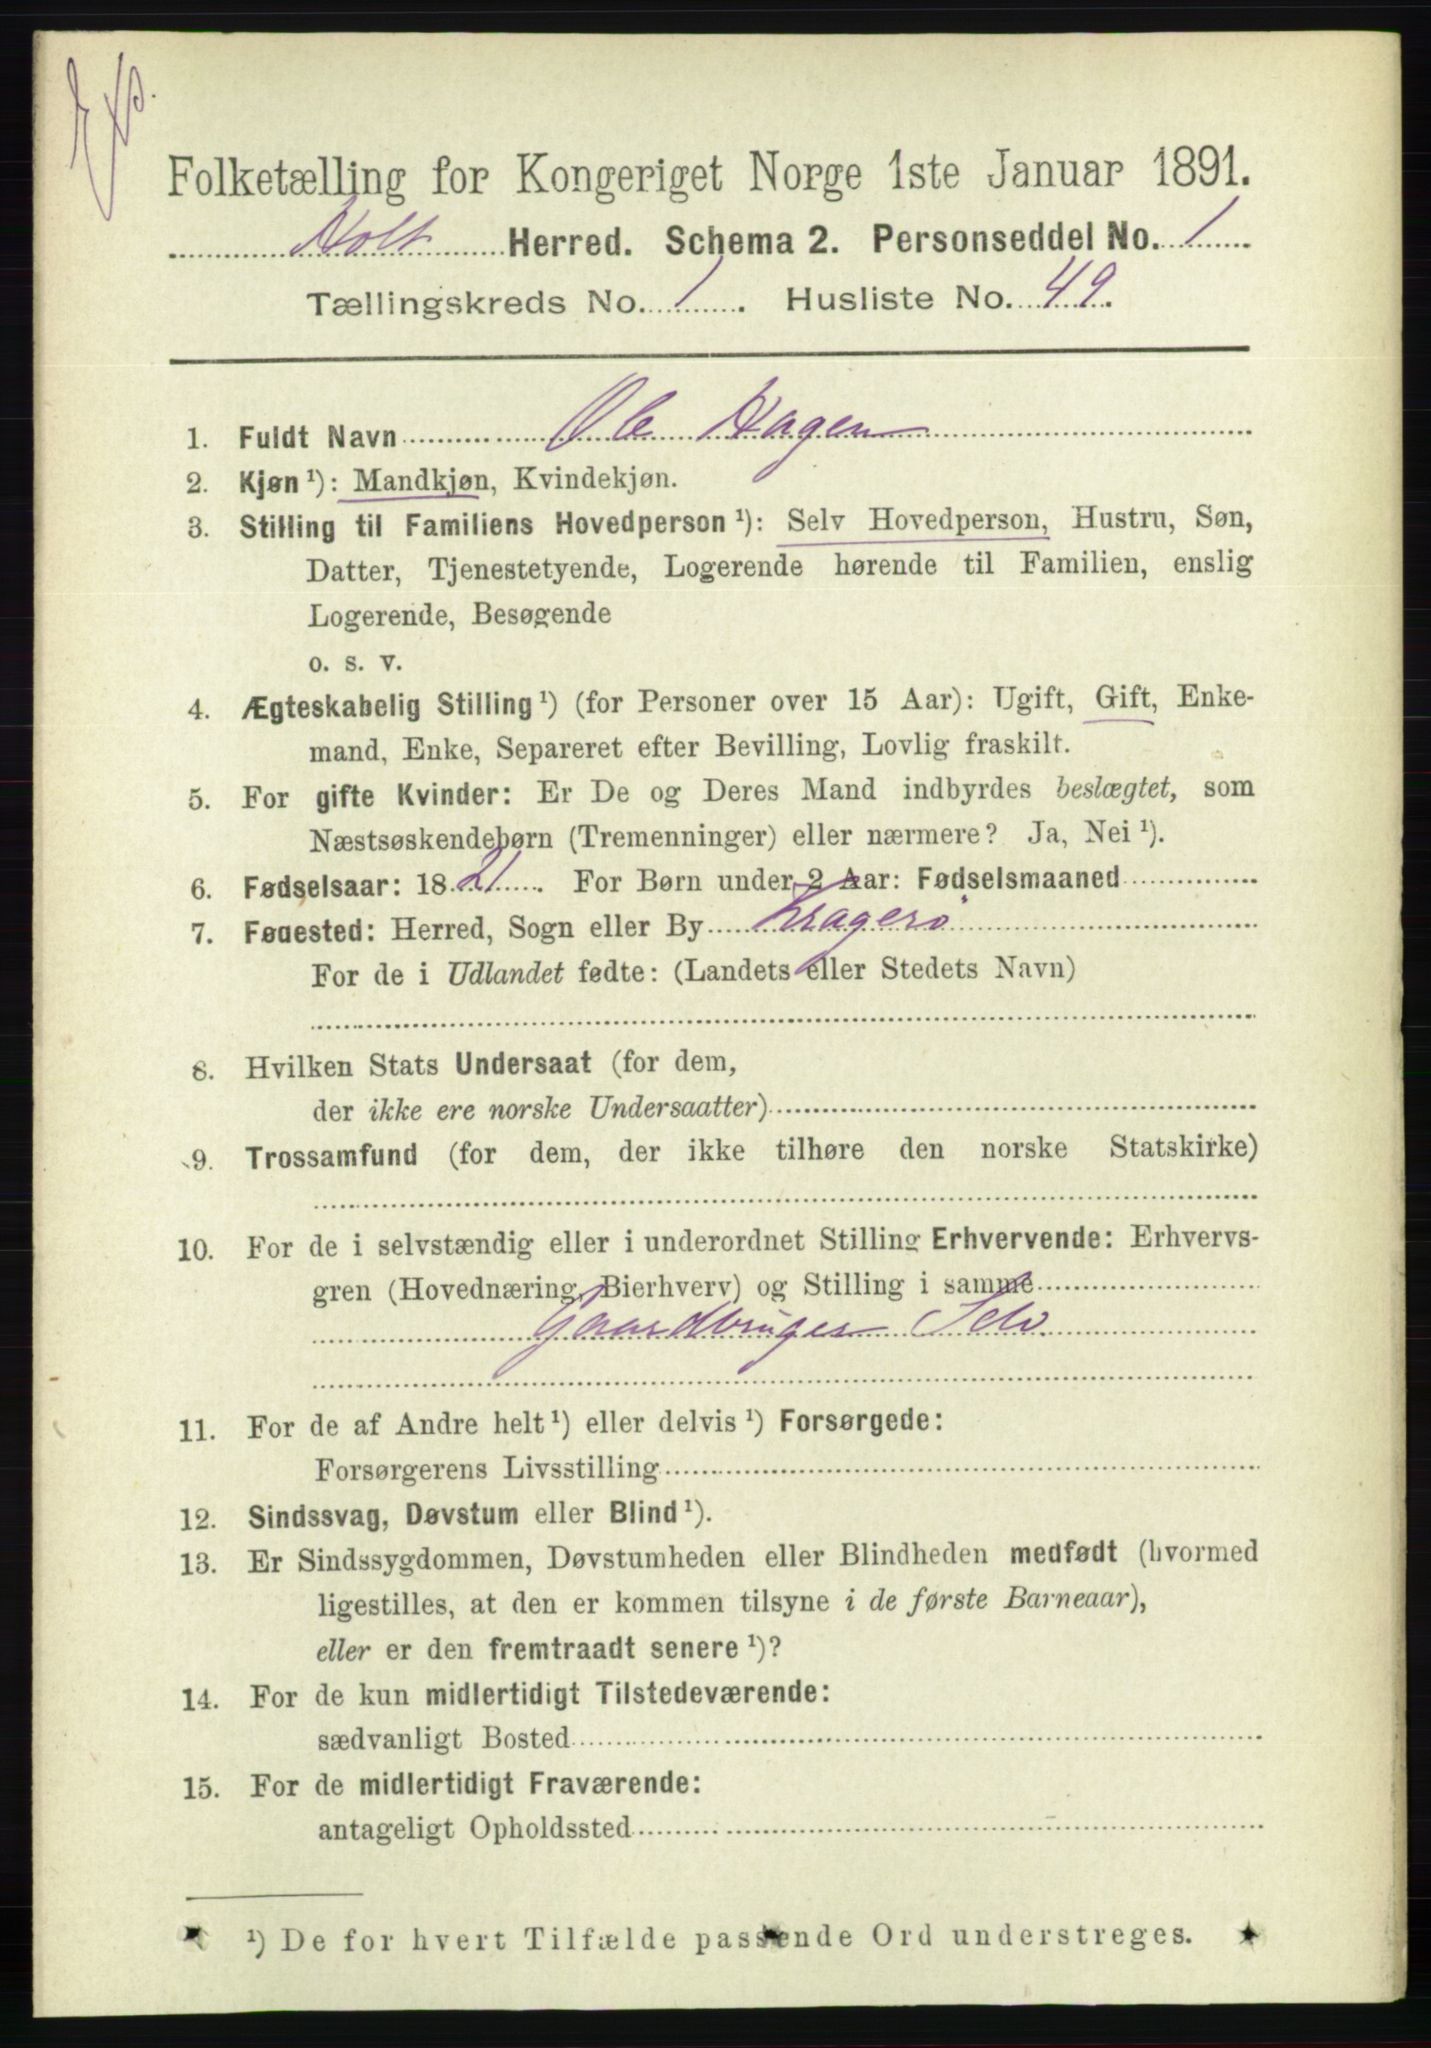 Folketælling for Kongeriget Norge 1ste Januar 1891.
Holt Herred. Schema 2. Personseddel No. 1
Tællingskreds No. 1. Husliste No. 49.
1. Fuldt Navn Ole Hagen
2. Kjøn ¹): Mandkjøn, Kvindekjøn.
3. Stilling til Familiens Hovedperson ¹): Selv Hovedperson, Hustru, Søn,
Datter, Tjenestetyende, Logerende hørende til Familien, enslig
Logerende, Besøgende
o. s. v.
4. Ægteskabelig Stilling ¹) (for Personer over 15 Aar): Ugift, Gift, Enke-
mand, Enke, Separeret efter Bevilling, Lovlig fraskilt.
5. For gifte Kvinder: Er De og Deres Mand indbyrdes beslægtet, som
Næstsøskendebørn (Tremenninger) eller nærmere? Ja, Nei ¹).
6. Fødselsaar: 1821. For Børn under 2 Aar: Fødselsmaaned
7. Fødested: Herred, Sogn eller By Kragerö
For de i Udlandet fødte: (Landets eller Stedets Navn)
8. Hvilken Stats Undersaat (for dem,
der ikke ere norske Undersaatter)
9. Trossamfund (for dem, der ikke tilhøre den norske Statskirke)
10. For de i selvstændig eller i underordnet Stilling Erhvervende: Erhvervs-
gren (Hovednæring, Bierhverv) og Stilling i samme
Gaardbruger Selv.
11. For de af Andre helt ¹) eller delvis ¹) Forsørgede:
Forsørgerens Livsstilling
12. Sindssvag, Døvstum eller Blind ¹).
13. Er Sindssygdommen, Døvstumheden eller Blindheden medfødt (hvormed
ligestilles, at den er kommen tilsyne i de første Barneaar),
eller er den fremtraadt senere ¹)?
14. For de kun midlertidigt Tilstedeværende:
sædvanligt Bosted
15. For de midlertidigt Fraværende:
antageligt Opholdssted
¹) De for hvert Tilfælde passende Ord understreges.